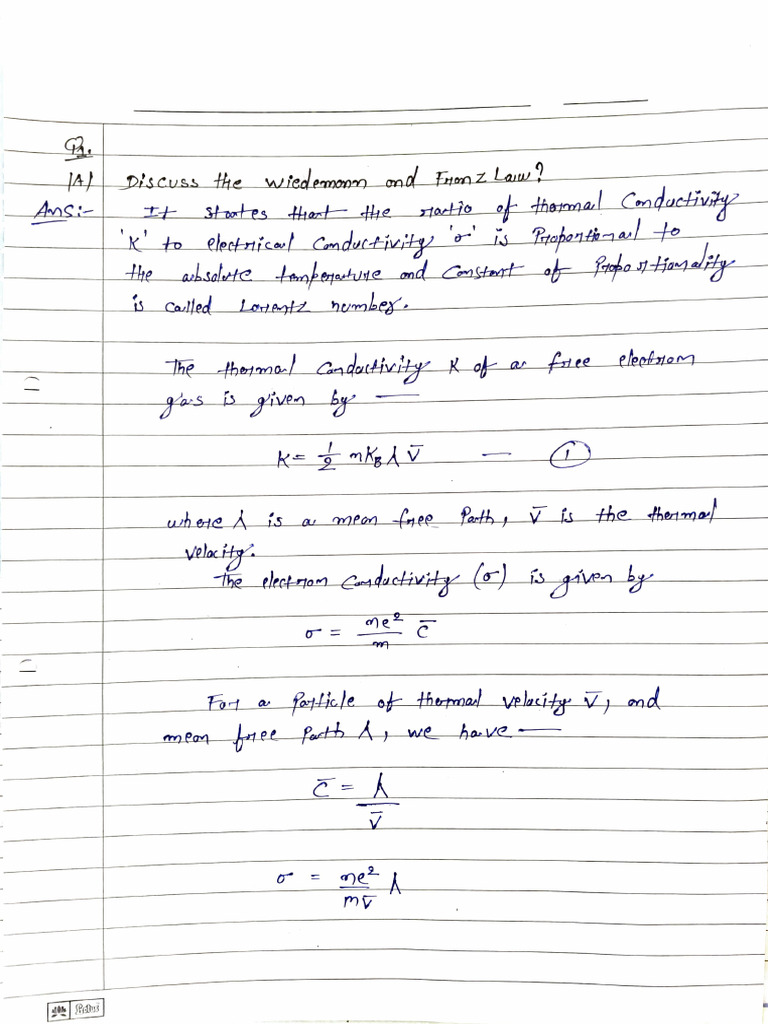 Q1.
(A) Discuss the Wiedemann and Franz Law?
Ans:- It states that the ratio of thermal Conductivity
'K' to electrical Conductivity 'σ' is Proportional to
the absolute temperature and Constant of Proportionality
is called Lorentz number.
The thermal Conductivity K of a free electron
gas is given by —
K = 1/2 nK_B λ V̄ — ①
where λ is a mean free Path, V̄ is the thermal
velocity.
The electron Conductivity (σ) is given by
σ = ne²/m C̄
For a Particle of thermal velocity V̄, and
mean free Path λ, we have —
C̄ = λ/V̄
σ = ne²/mV̄ λ